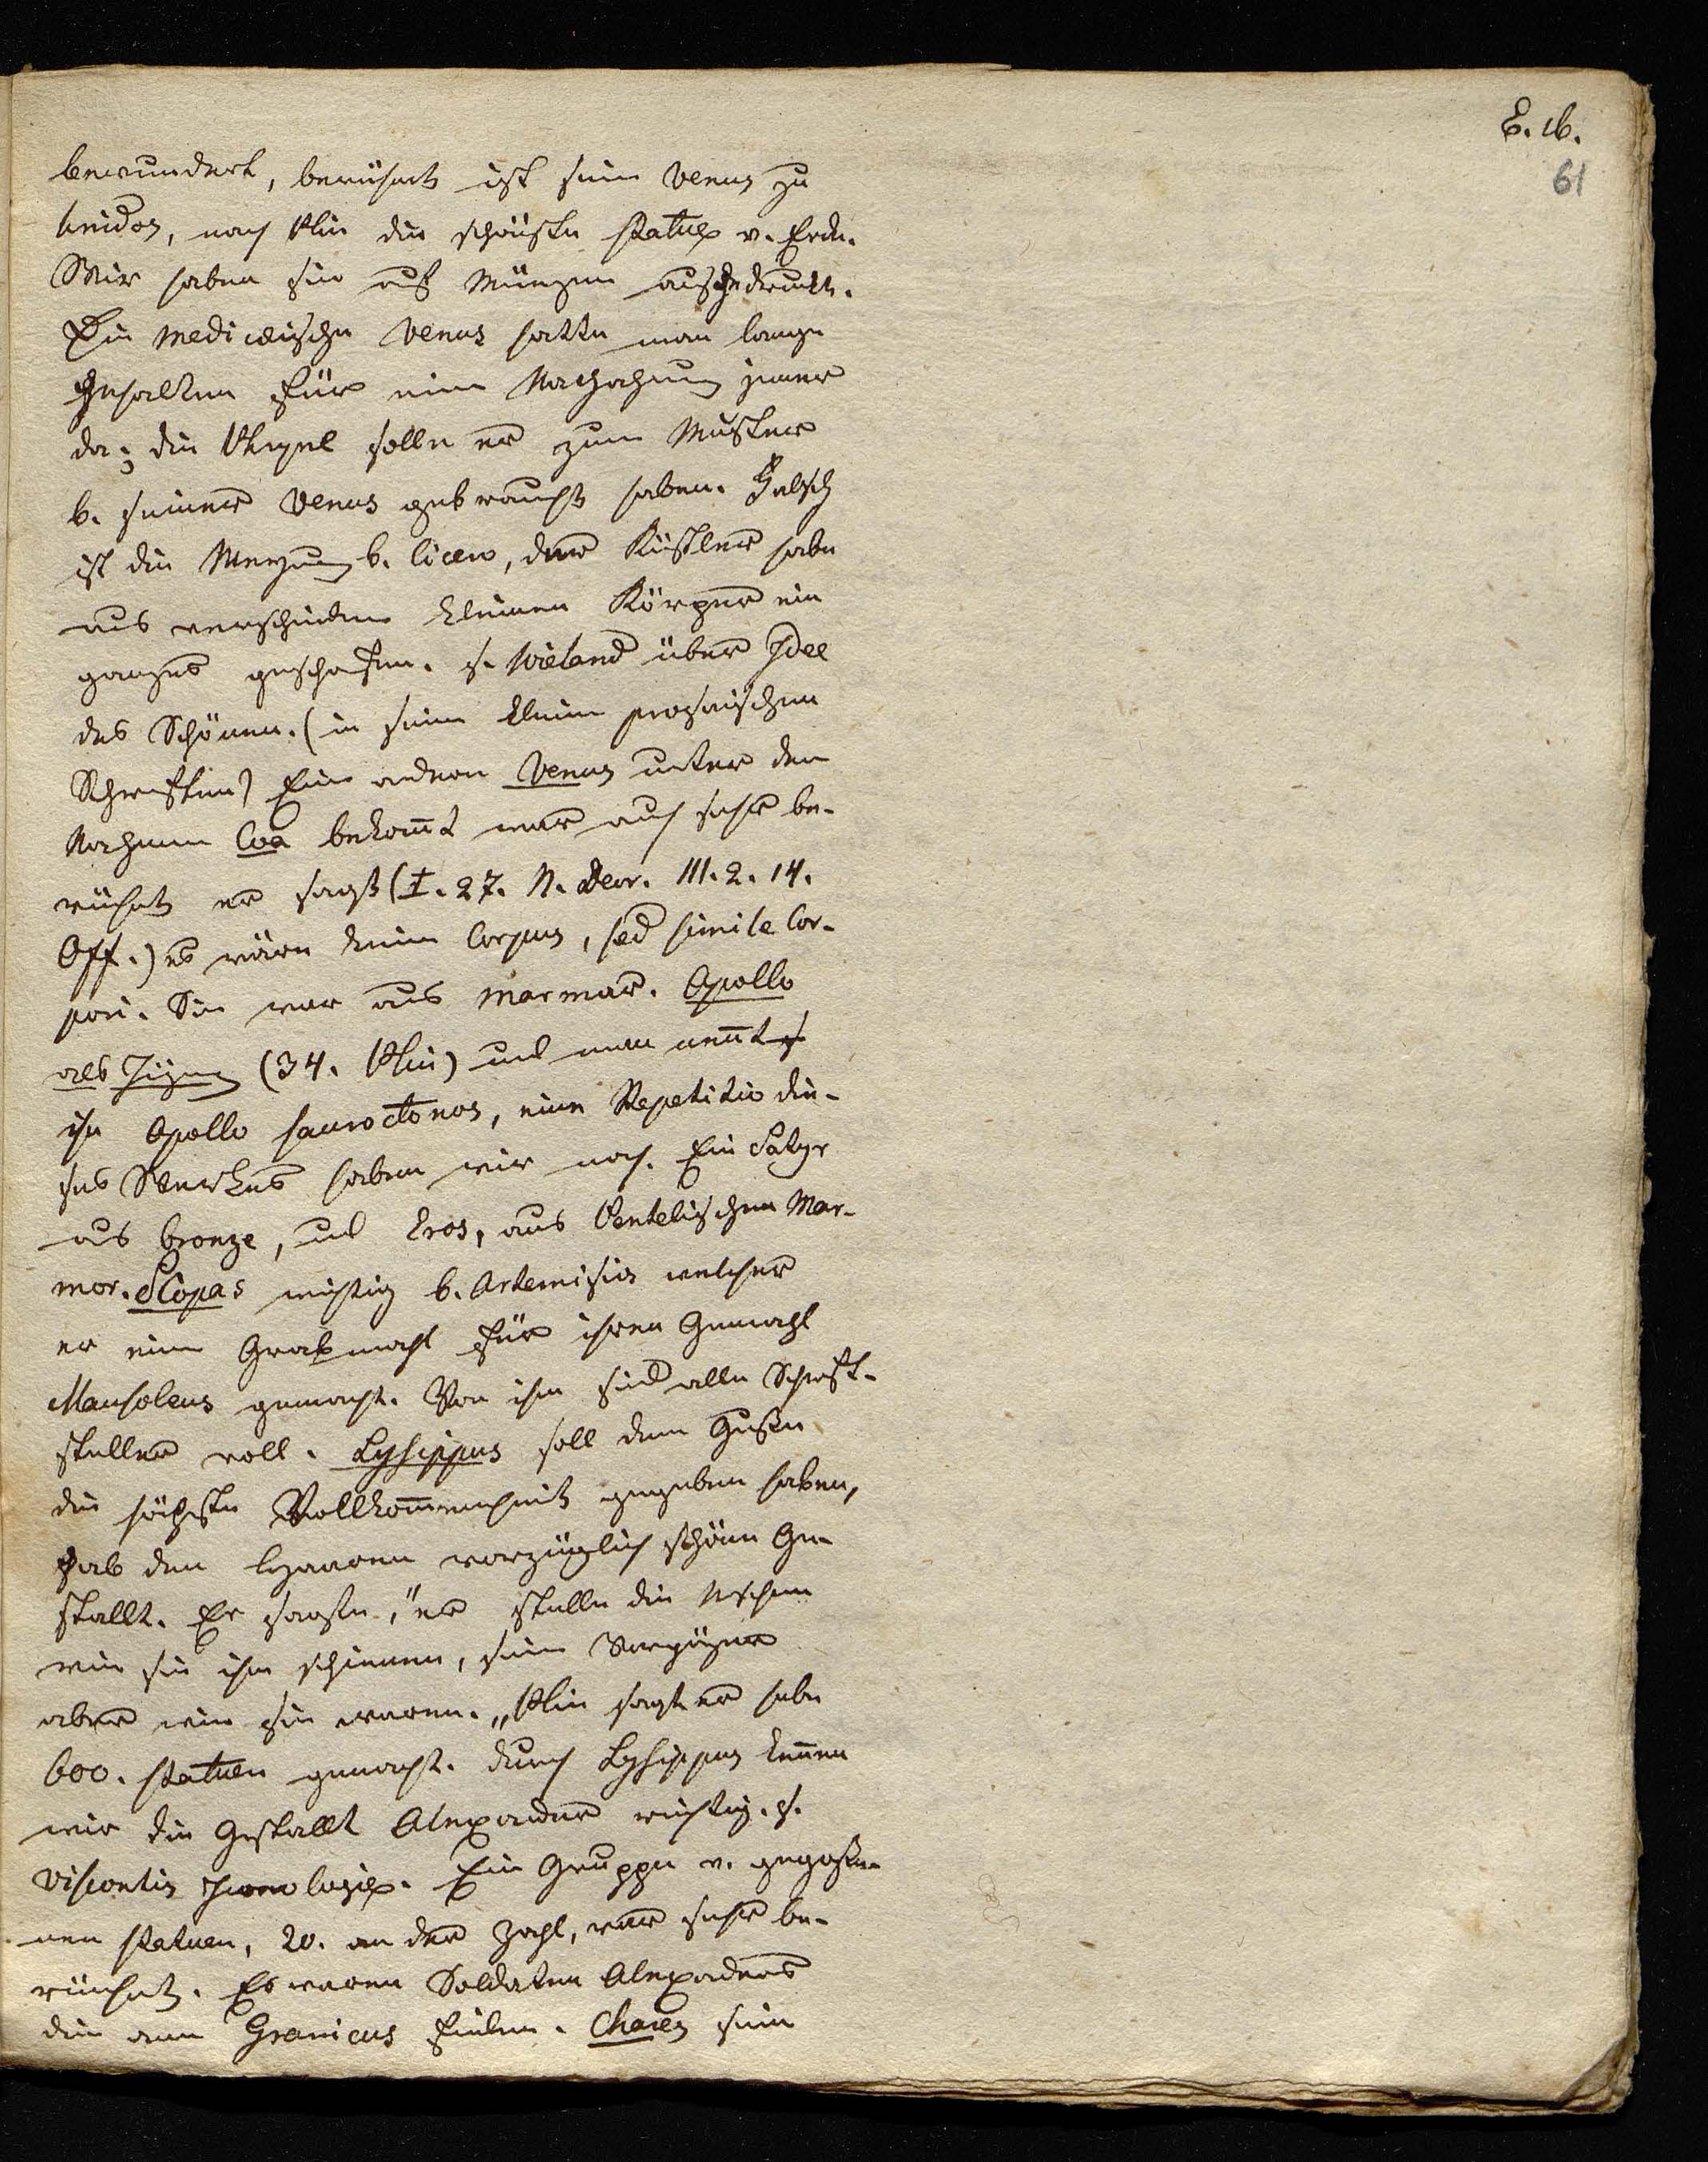 E. 16.
61
bewundert, berühmt ist seine Venus zu
Knidos, nach Plin die schönste statue v. Erde.
Wir haben sie auf Münzen ausgedruckt.
Die mediceische Venus hatte man lange
gehalten für eine Nachahmung jener
da; die Phryne solle er zum Muster
b. seiner Venus gebraucht haben. Falsch
ist die Meynung b. Cicero, der Küstler habe
aus verschiedene kleinen Körper ein
ganzes geschaffen. s. Wieland über Idee
des Schönen. (in seine kleine prosaischen
Schriften) Eine andere Venus unter dem
Nahmen Coa bekannt war auch sehr be-
rühmt er sagt (I. 27. N. Deor. III. 2. 14.
Off.) es wäre keine Corpus, sed simile Cor-
pori. Sie war aus Marmor. Apollo
als Jüng (34. Plin) und man nennt
ihn Apollo sauroctonos, eine Repetitio die-
ses Werkes haben wir noch. Ein Satyr
aus bronze, und Eros, aus Pentelischen Mar-
mor. Scopas wichtig b. Artemisia welcher
er eine Grabmahl für ihren Gemahl
Mausoleus gemacht. Von ihm sind alle Schrift-
steller voll. Lysippus soll dem Gusse
die höchste Vollkommenheit gegeben haben,
gab den Haaren vorzüglich schöne Ge-
stallt. Er sagte, "er stelle die Menschen
wie sie ihm schienen, seine Vorgänger
aber wie sie waren." Plin sagt er habe
600. statuen gemacht. durch Lysippus kennen
wir die Gestallt Alexander richtig. s.
Viscontis Iconologie. Eine Gruppe v. gegosse-
nen statuen, 20. an der Zahl, war sehr be-
rühmt. Es waren Soldaten Alexanders
die am Granicus fielen. Chares sein